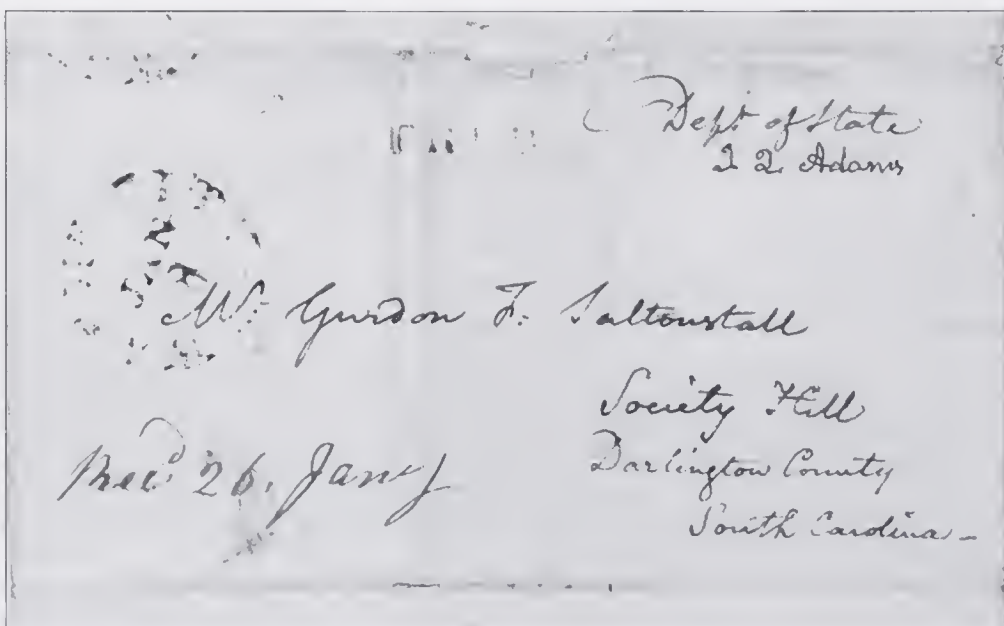 Dept of State
J Q. Adams
Mr. Gurdon F. Saltonstall
Society Hill
Darlington County
South Carolina -
Recd 26. Jany